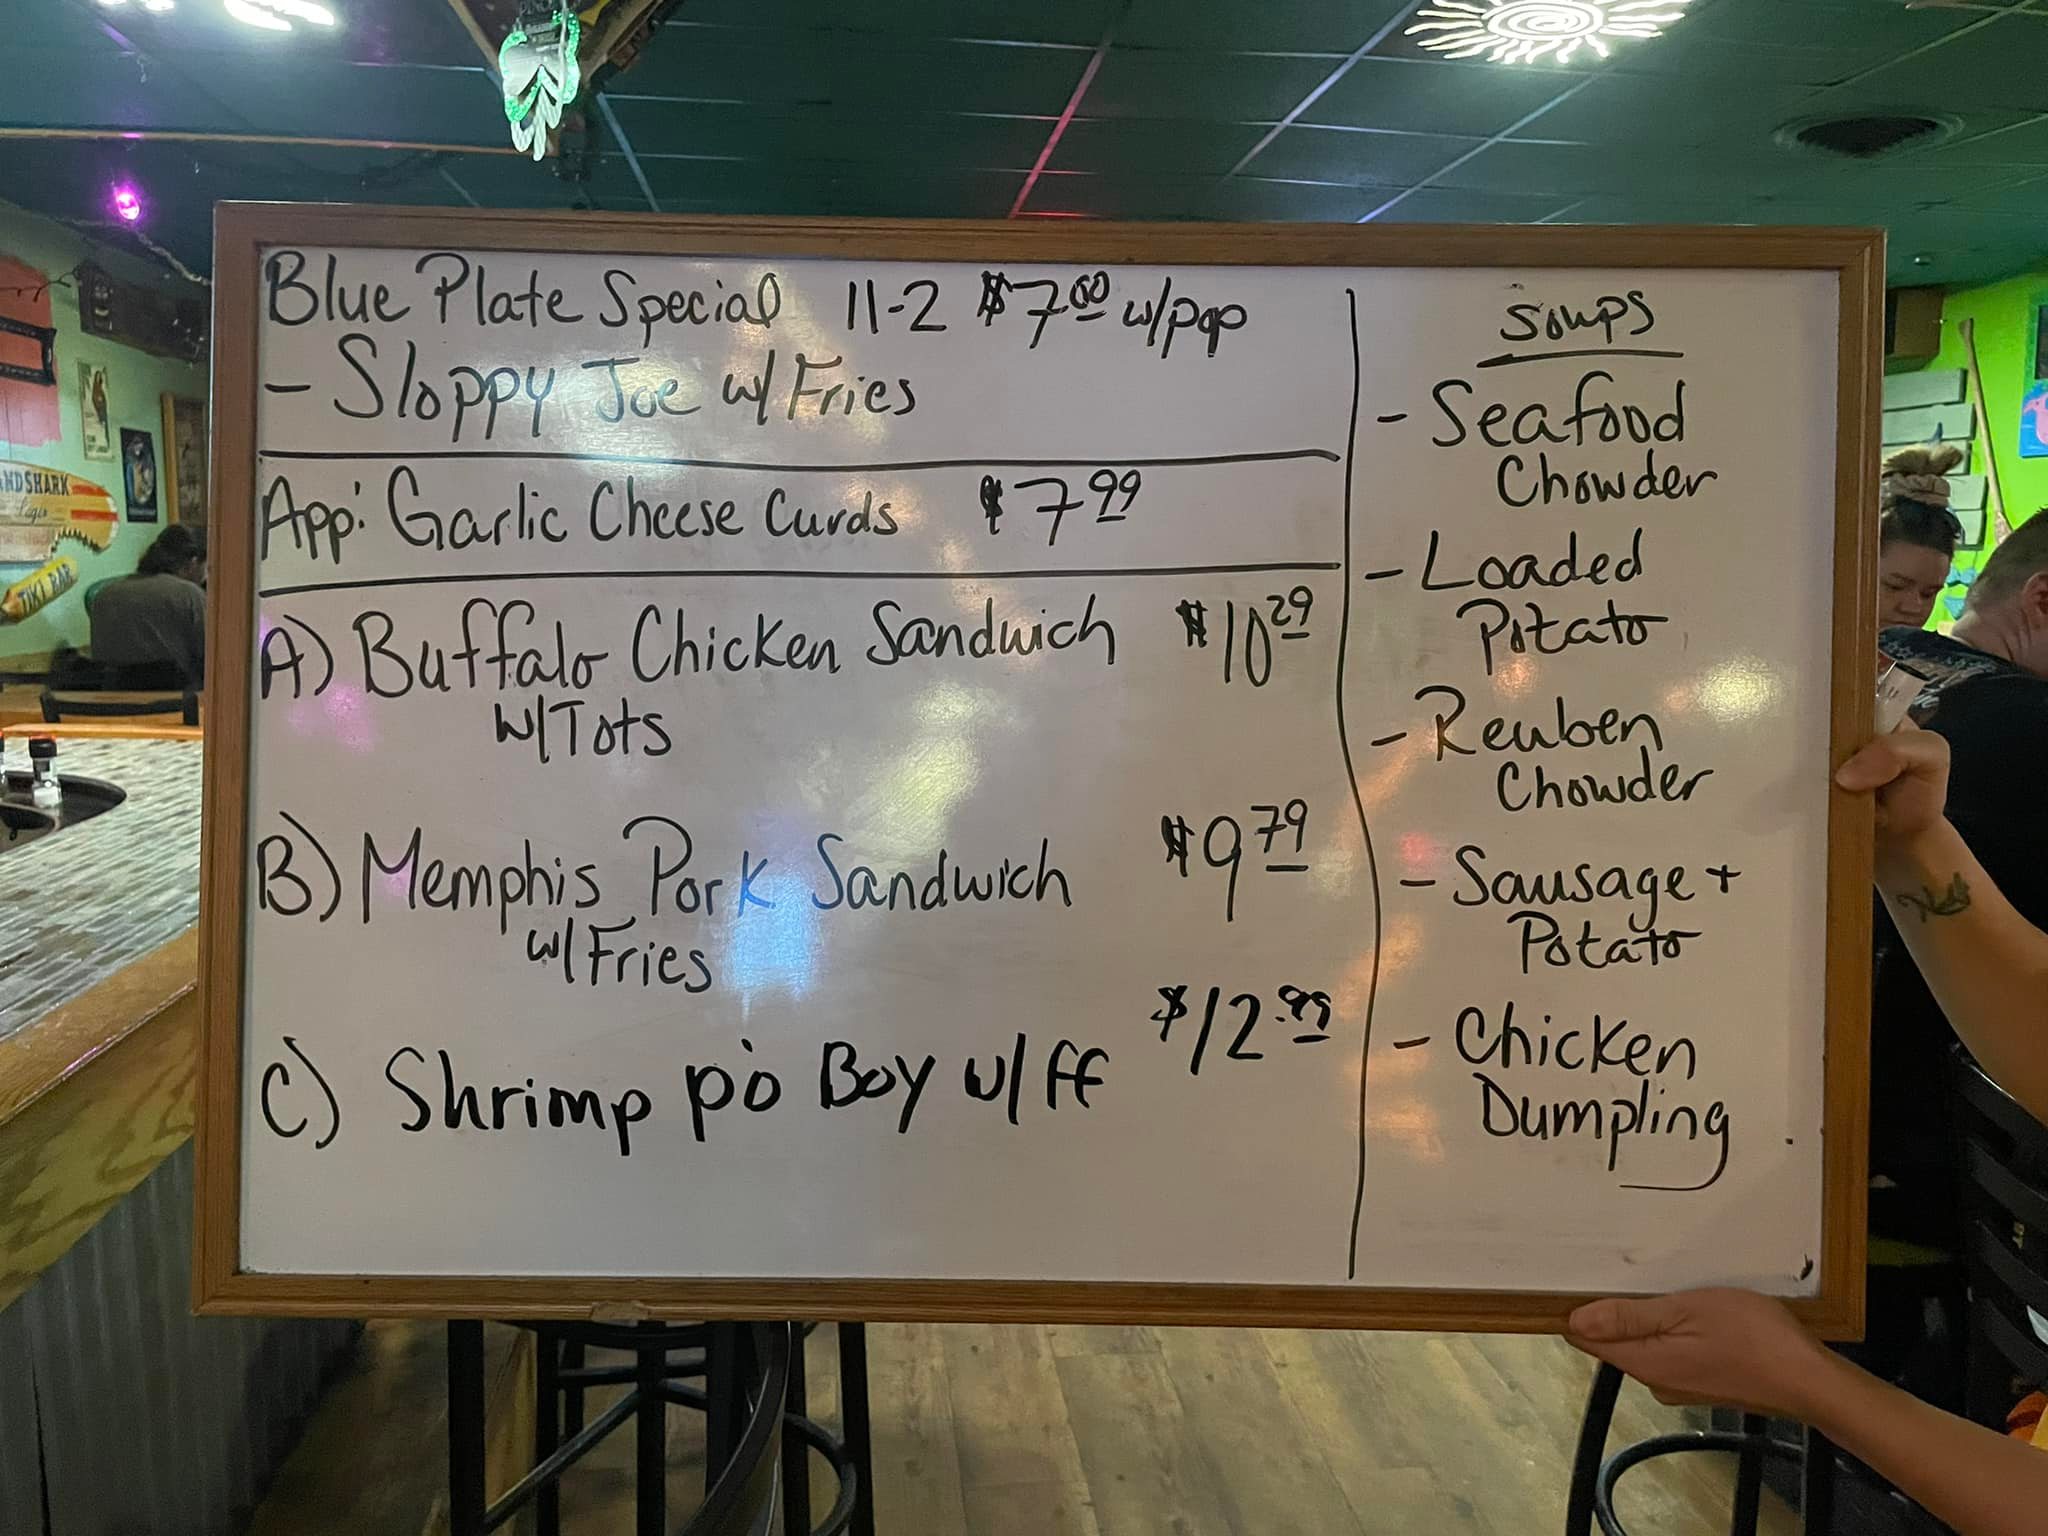 Blue Plate Special 11-2 $7.00 w/pop
- Sloppy Joe w/ Fries
App: Garlic Cheese Curds $7.99
A) Buffalo Chicken Sandwich $10.29
w/Tots
B) Memphis Pork Sandwich $9.79
w/Fries
C) Shrimp po Boy w/ff $12.99
Soups
- Seafood
Chowder
- Loaded
Potato
- Reuben
Chowder
- Sausage +
Potato
- Chicken
Dumpling
NDSHARK
Lager
TIKI BAR